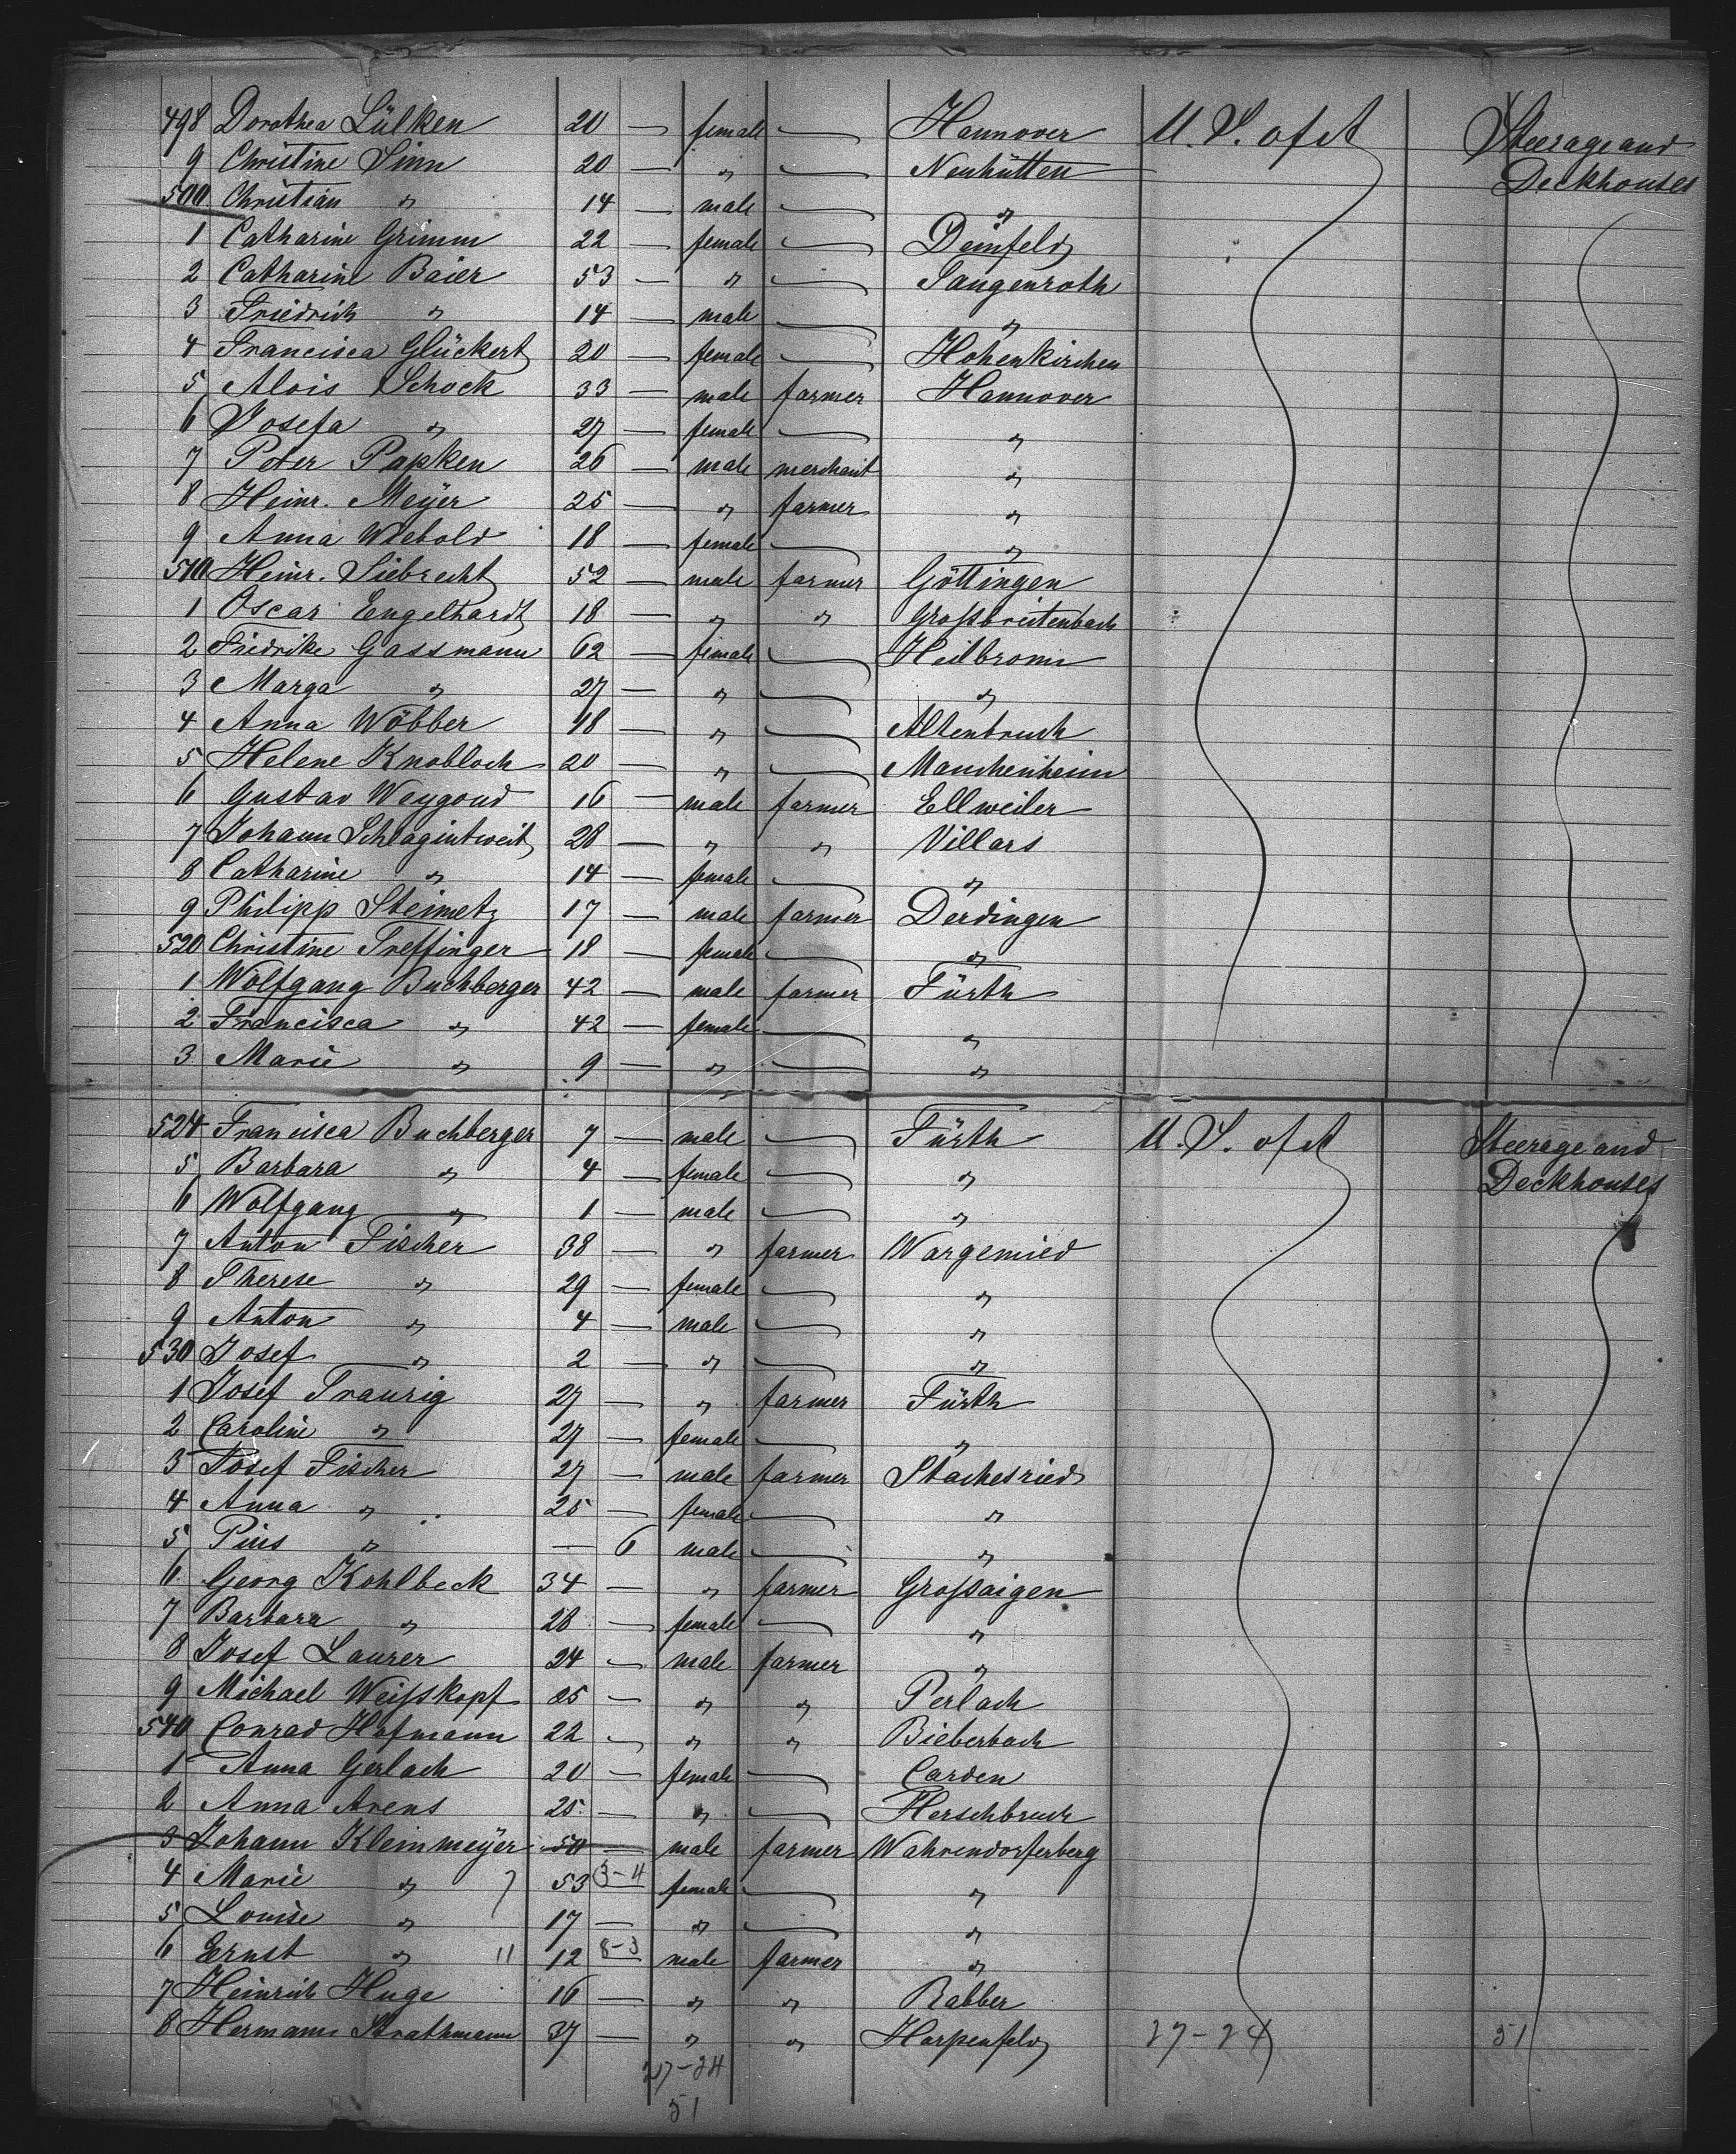 498 Dorothea Lülken 20 — female — Hannover U. S. of A Steerage and
9 Christine Sinn 20 — " — Neuhütten Deckhouses
500 Christian " 14 — male — "
1 Catharine Grimm 22 — female — Deinfeld
2 Catharine Baier 53 — " — Langenroth
3 Friedrich " 14 — male — "
4 Francisca Glückert 20 — female — Hohenkirchen
5 Alois Schock 33 — male farmer Hannover
6 Josefa " 27 — female — "
7 Peter Papken 26 — male merchant "
8 Heinr. Meÿer 25 — " farmer "
9 Anna Wiebold 18 — female — "
510 Heinr. Siebrecht 52 — male farmer Göttingen
1 Oscar Engelhardt 18 — " " Großbreitenbach
2 Fridrike Gassmann 62 — female — Heilbronn
3 Marga " 27 — " — "
4 Anna Wöbber 18 — " — Altenbruch
5 Helene Knobloch 20 — " — Mauchenheim
6 Gustav Weygoud 16 — male farmer Ellweiler
7 Johann Schlagintweit 28 — " " Villars
8 Catharine " 14 — female — "
9 Philipp Steimetz 17 — male farmer Derdingen
520 Christine Treffinger 18 — female — "
1 Wolfgang Buchberger 42 — male farmer Fürth
2 Francisca " 42 — female — "
3 Marie " 9 — " — "
524 Francisca Buchberger 7 — male — Fürth U. S. of A Steerage and
5 Barbara " 4 — female — " Deckhouses
6 Wolfgang " 1 — male — "
7 Anton Fischer 38 — " farmer Wargemied
8 Therese " 29 — female — "
9 Anton " 4 — male — "
530 Josef " 2 — " — "
1 Josef Traurig 27 — " farmer Fürth
2 Caroline " 27 — female — "
3 Josef Fischer 27 — male farmer Stachesried
4 Anna " 25 — female — "
5 Pius " — 6 male — "
6 Georg Kohlbeck 34 — " farmer Großaigen
7 Barbara " 28 — female — "
8 Josef Laurer 24 — male farmer "
9 Michael Weißkopf 25 — " " Perlach
540 Conrad Hofmann 22 — " " Bieberbach
1 Anna Gerlach 20 — female — Carden
2 Anna Arens 25 — " — Herschbruch
3 Johann Kleinmeÿer 50 — male farmer Wahrendorferberg
4 Marie " 7 53 3-4 female — "
5 Louise " 17 — " — "
6 Ernst " 11 12 8-3 male farmer "
7 Heinrich Huge 16 — " " Rabber
8 Hermann Strathmann 37 — " " Harpenfeld 27-24 51
27-24
51